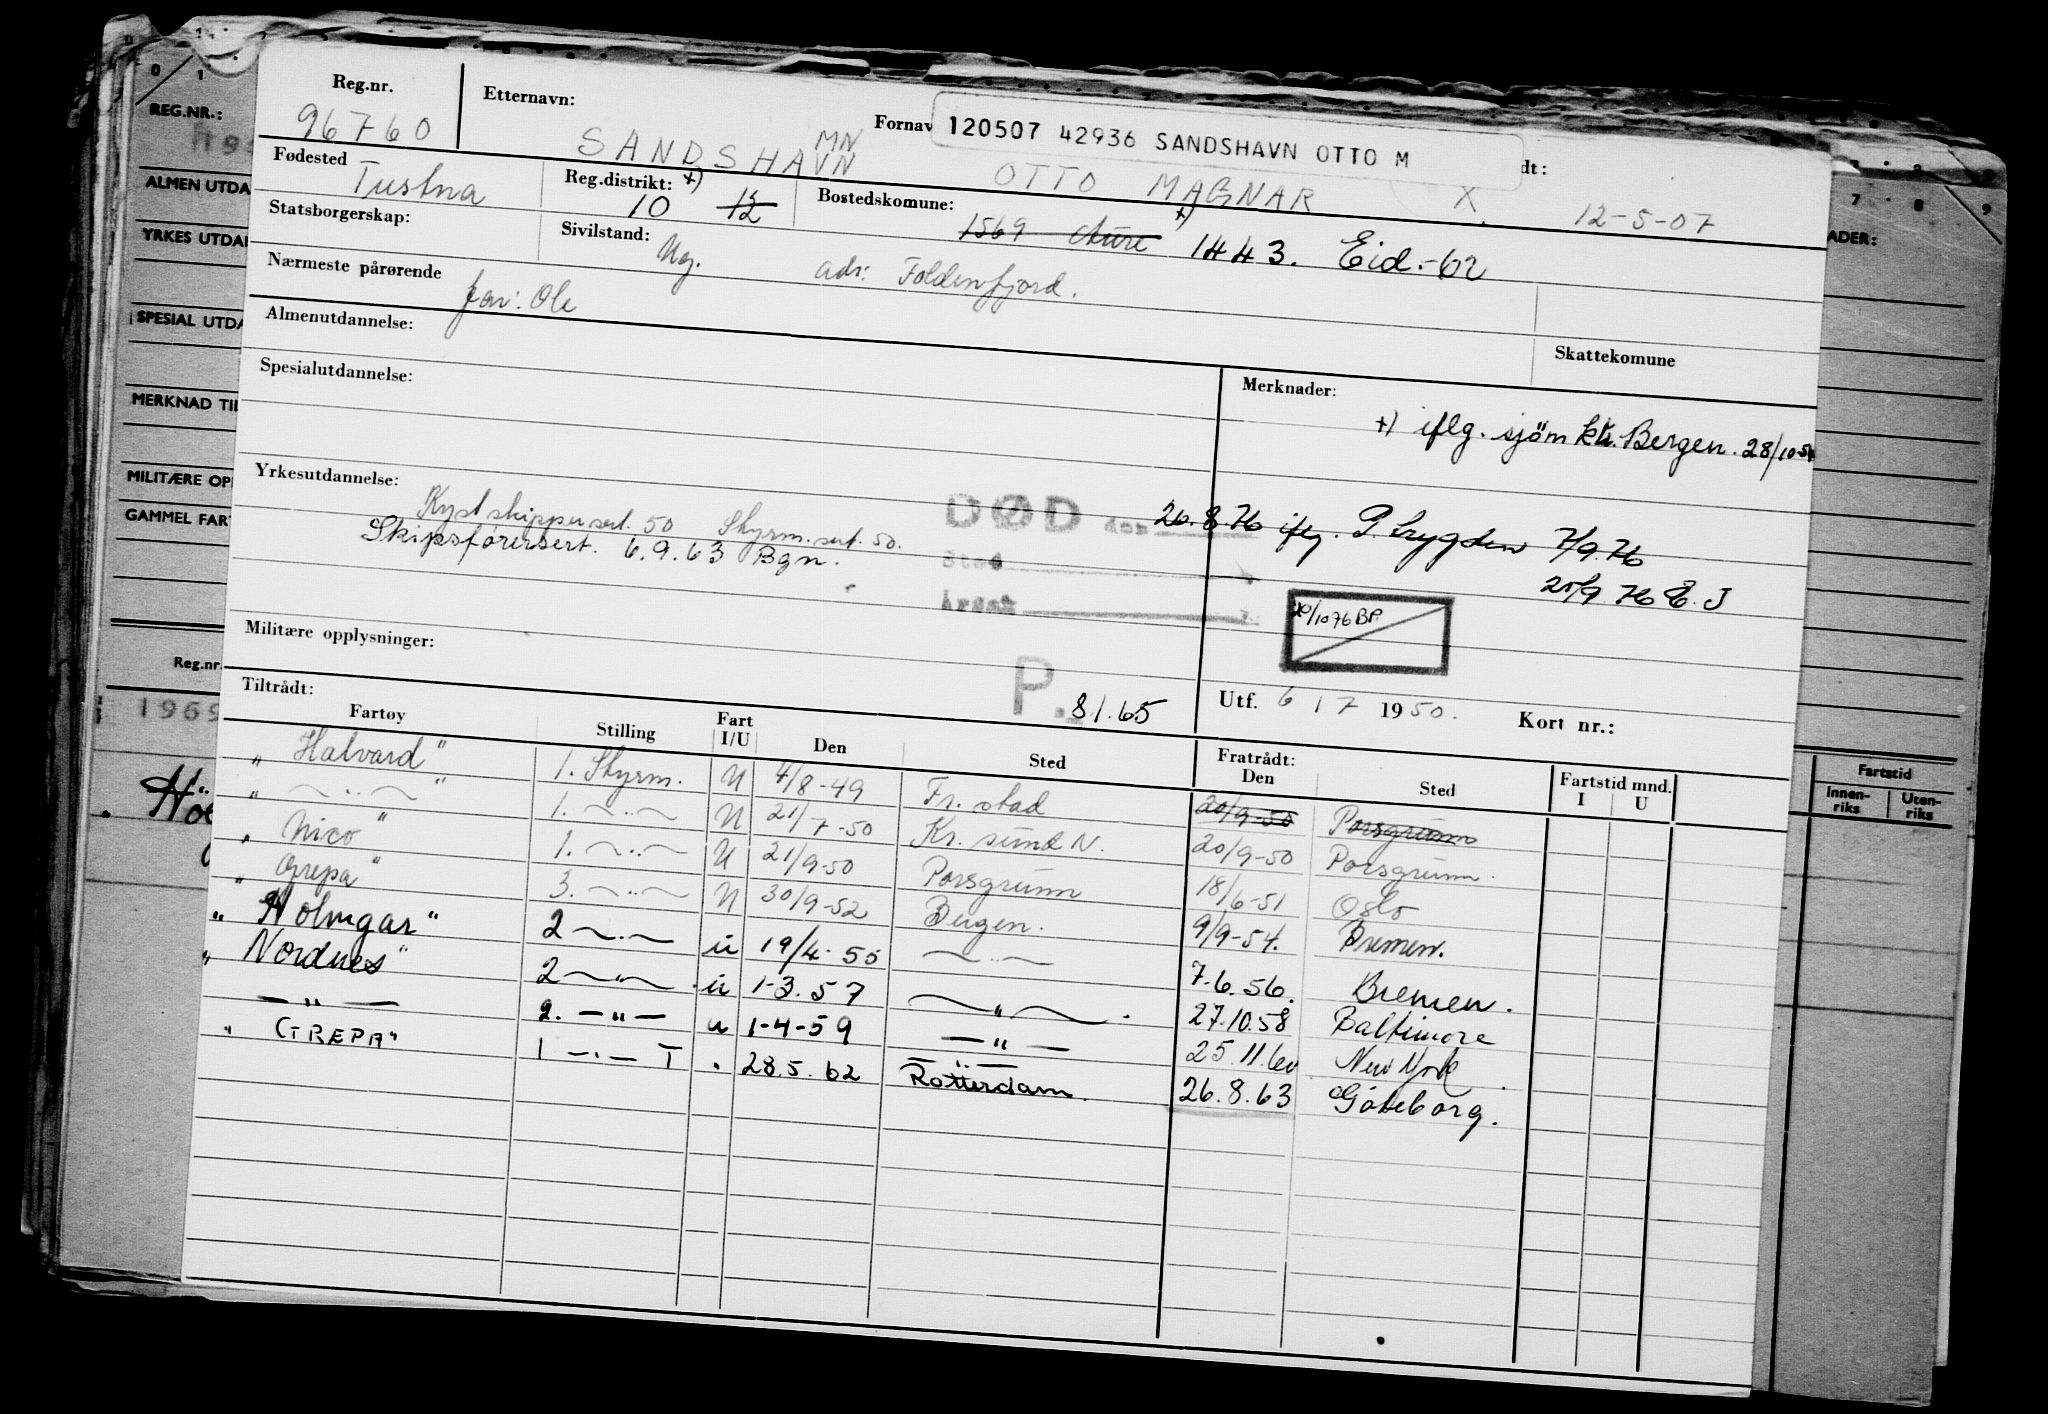 Reg.nr. Etternavn: Fornav 120507 42936 SANDSHAVN OTTO M dt:
96760 SANDSHAVN MN OTTO MAGNAR X. 12-5-07
Fødested Tustna Reg.distrikt: x) 10 12 Bostedskomune: 1569 Aure x) 1443. Eid.-62
Statsborgerskap: Sivilstand: Ug. adr: Foldenfjord.
Nærmeste pårørende far: Ole
Almenutdannelse: Skattekomune
Spesialutdannelse: Merknader:
x) iflg. sjøm ktr. Bergen. 28/10-54
Yrkesutdannelse: Kystskippersert. 50 Styrm. sert. 50.
Skipsførersert. 6.9.63 Bgn.
DØD den 26.8.76 iflg. P. 7/9.76
Sted 25/9 76 E.J
Årsak
20/1076 BP.
Militære opplysninger:
P. 8.1.65 Utf. 6 / 7 1950. Kort nr.:
Tiltrådt: Fratrådt:
Fartøy Stilling Fart I/U Den Sted Den Sted Fartstid mnd. I U
„ Halvard " 1. Styrm. U 4/8-49 Fr.stad 20/9-50 Porsgrunn
„ —..— " 1. —..— U 21/7-50 Kr.sund N. 20/9-50 Porsgrunn.
„ Nico " 1. —..— U 21/9-50 Porsgrunn 18/6-51 Oslo
„ Grepa " 3. —..— U 30/9-52 Bergen. 9/9-54. Bremen.
„ Holmgar " 2 —..— u 19/4-55 —..— 7.6.56. Bremen.
„ Nordnes " 2 —"— u 1-3.57 —"— . 27.10.58 Baltimore
— " — 2. —"— u 1-4-59 — " — 25.11.60 New York.
„ GREPA " 1 —.— T . 28.5.62 Rotterdam. 26.8.63 Göteborg.
0 1
REG.NR.:
ALMEN UTDA
YRKES UTDA
SPESIAL UTDA
MERKNAD TIL
MILITÆRE OP
GAMMEL FAR
Reg.nr.
1969
7 8 9
ADER:
Fartstid
Innen-riks Uten-riks